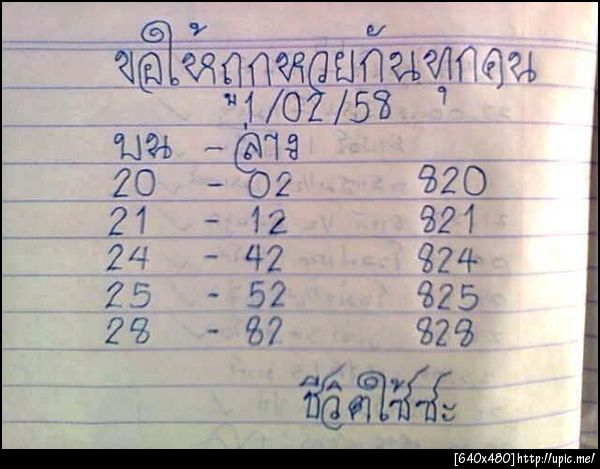 ขอให้ถูกหวยกันทุกคน
1/02/58
บน - ล่าง
20 - 02 820
21 - 12 821
24 - 42 824
25 - 52 825
28 - 82 828
ชีวิตใช้ซะ
[640x480]http://upic.me/